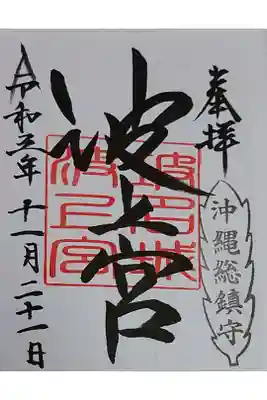 奉拝
沖縄総鎮守
波上宮
波上宮
令和三年十一月二十一日